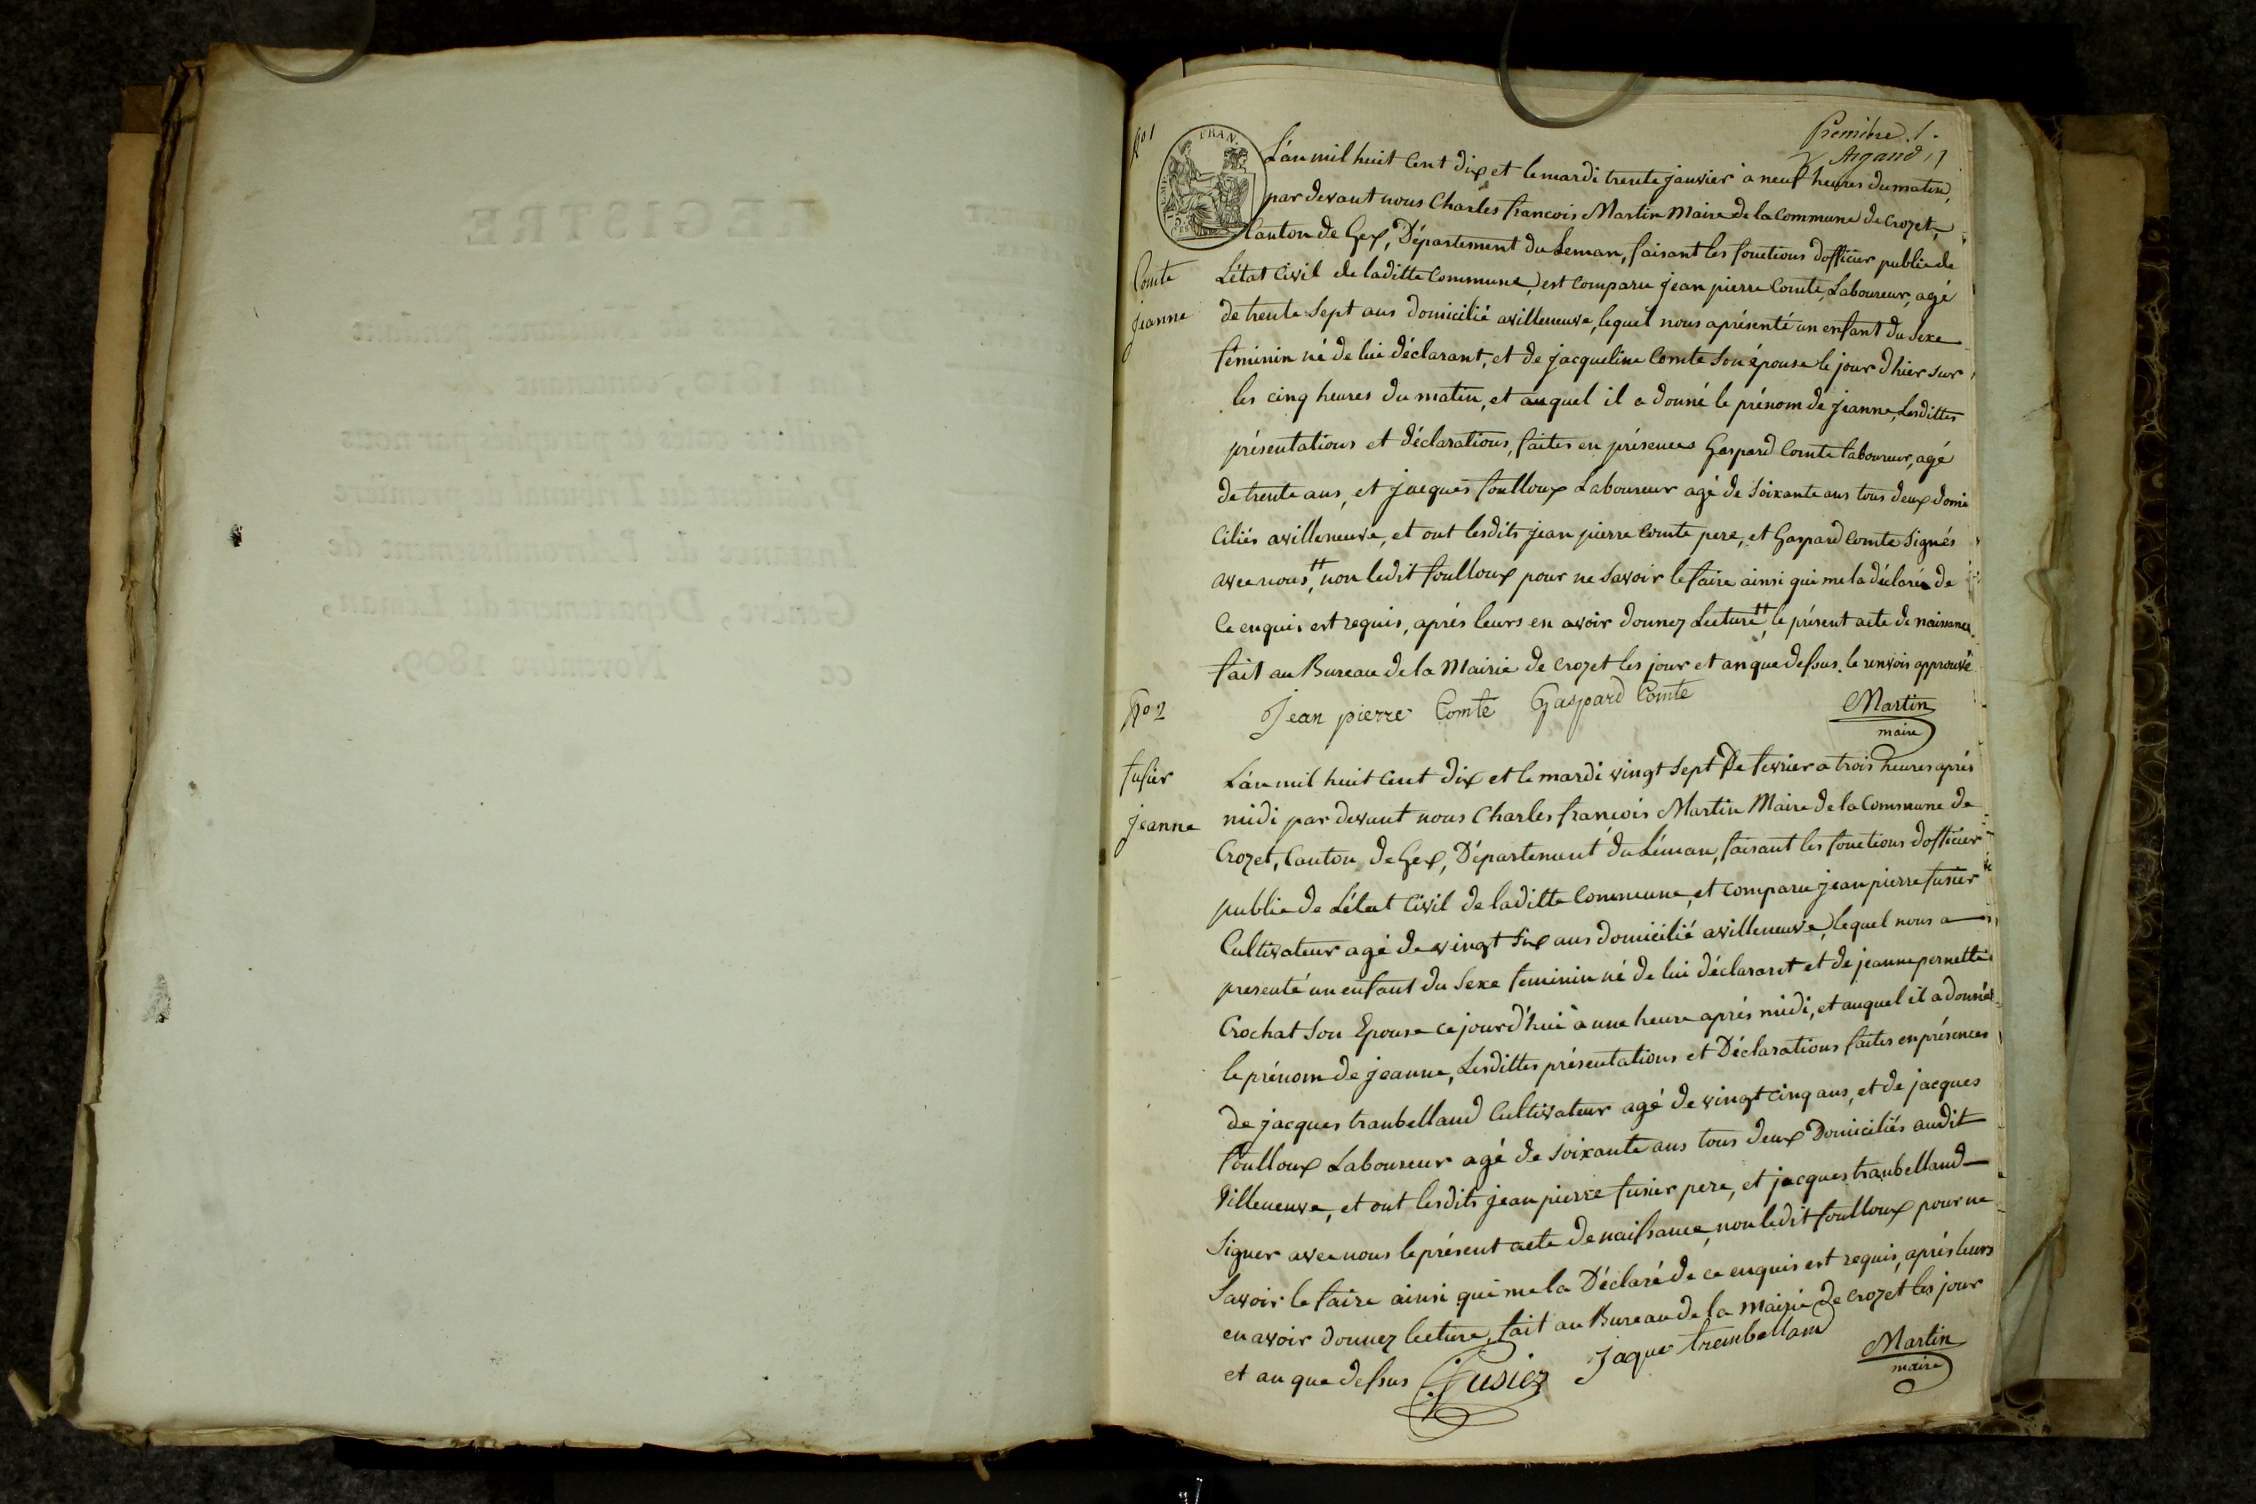 Première 1.
Argand
No 1
FRAN.
L'an mil huit Cent dix et le mardi trente janvier à neuf heures du matin,
par devant nous Charles francois Martin Maire de la Commune de Crozet,
Canton de Gex, Département du Leman, faisant les fonctions d'officier public de
Comte
Jeanne
L'état Civil de laditte Commune, est comparu jean pierre Comte, Laboureur, agé
de trente Sept ans domicilié avilleneuve, lequel nous aprésenté un enfant du Sexe
féminin né de lui déclarant, et de jacqueline Comte Son épouse le jour d'hier sur
les cinq heures du matin, et auquel il a donné le prénom de jeanne, Lesdittes
présentations et déclarations, faites en présences Gaspard Comte laboureur, agé
de trente ans, et jacques foulloux Laboureur agé de Soixante ans tous deux domi
ciliés avilleneuve, et ont lesdits jean pierre Comte pere, et Gaspard Comte Signés
avec nous, ++ non ledit foulloux pour ne Savoir le faire ainsi qui me la déclaré de
Ce enquis est requis, après leurs en avoir donnez Lecture ++, le présent acte de naissance
fait au Bureau de la Mairie de Crozet les jour et an que dessus. le renvois approuvé
Jean pierre Comte Gaspard Comte
Martin
maire
No 2
fusier
Jeanne
L'an mil huit Cent dix et le mardi vingt Sept De fevrier a trois heures aprés
midi par devant nous Charles francois Martin Maire de la Commune de
Crozet, Canton de Gex, Département du Léman, faisant les fonctions d'officier
public de L'état Civil de laditte Commune, et comparu jean pierre fusier
Cultivateur agé de vingt Six ans domicilié avilleneuve, lequel nous a
presenté un enfant du Sexe feminin né de lui déclarant et de jeanne pernette
Crochat Son Epouse cejourd'hui à une heure aprés midi, et auquel il a donné
le prénom de jeanne, Lesdittes présentations et Déclarations faites en présences
de jacques tranbelland Cultivateur agé de vingt cinq ans, et de jacques
foulloux Laboureur agé de Soixante ans tous deux Domiciliés audit
Villeneuve, et ont lesdits jean pierre fusier pere, et jacques tranbelland
Signer avec nous le présent acte de naissance, non ledit foulloux pour ne
Savoir le faire ainsi qui me la Déclaré de ce enquis est requis, aprés leurs
en avoir donnez lecture, fait au Bureau de la Mairie de Crozet les jour
et an que dessus Fusier Jaque tranbelland
Martin
maire
REGISTRE
l'an 1810, contenant
feuillets cotés et paraphés par nous
du Tribunal de première
Instance de l'Arrondissement de
Genève, Département du Léman,
ce Novembre 1809.